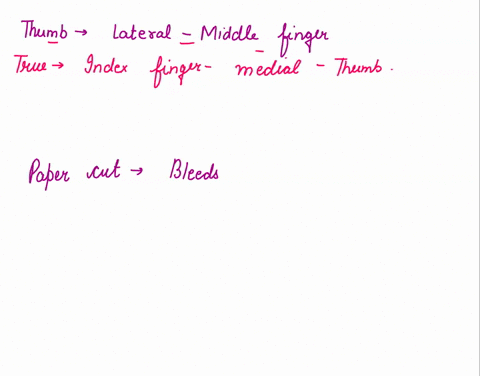 Thumb → Lateral = Middle finger
True → Index finger - medial - Thumb.
Paper cut → Bleeds